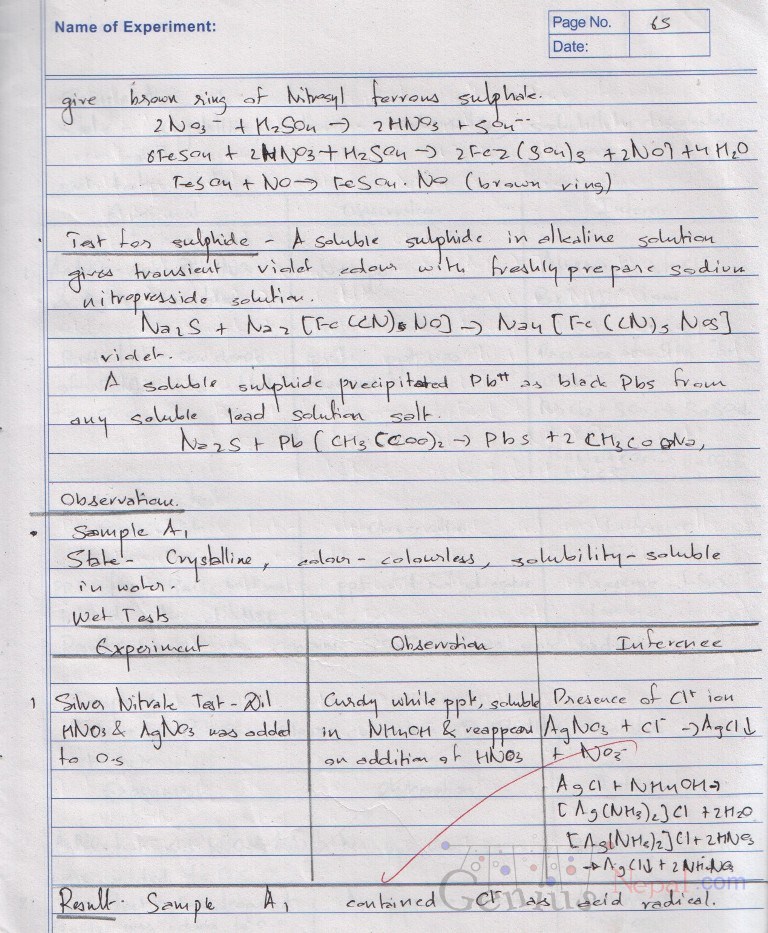 Name of Experiment:
Page No. 65
Date:
give brown ring of Nitrosyl ferrous sulphate.
2NO3⁻ + H2SO4 → 2HNO3 + SO4⁻⁻
6FeSO4 + 2HNO3 + H2SO4 → 2Fe2(SO4)3 + 2NO↑ + 4H2O
FeSO4 + NO → FeSO4.NO (brown ring)
Test for sulphide - A soluble sulphide in alkaline solution
gives transient violet colour with freshly prepare sodium
nitropresside solution.
Na2S + Na2[Fe(CN)5NO] → Na4[Fe(CN)5NOS]
violet.
A soluble sulphide precipitated Pb⁺⁺ as black PbS from
any soluble lead solution salt.
Na2S + Pb(CH3COO)2 → PbS + 2CH3COONa,
Observation.
• Sample A1
State - Crystalline, colour - colourless, solubility - soluble
in water.
Wet Tests
Experiment Observation Inference
1 Silver Nitrate Test - Dil Curdy white ppt, soluble Presence of Cl⁻ ion
HNO3 & AgNO3 was added in NH4OH & reappear AgNO3 + Cl⁻ → AgCl↓
to O.S on addition of HNO3 + NO3⁻
AgCl + NH4OH →
[Ag(NH3)2]Cl + 2H2O
[Ag(NH3)2]Cl + 2HNO3
→ AgCl↓ + 2NH4NO3
Result. Sample A1 contained Cl⁻ as acid radical.
Genius Nepal.com